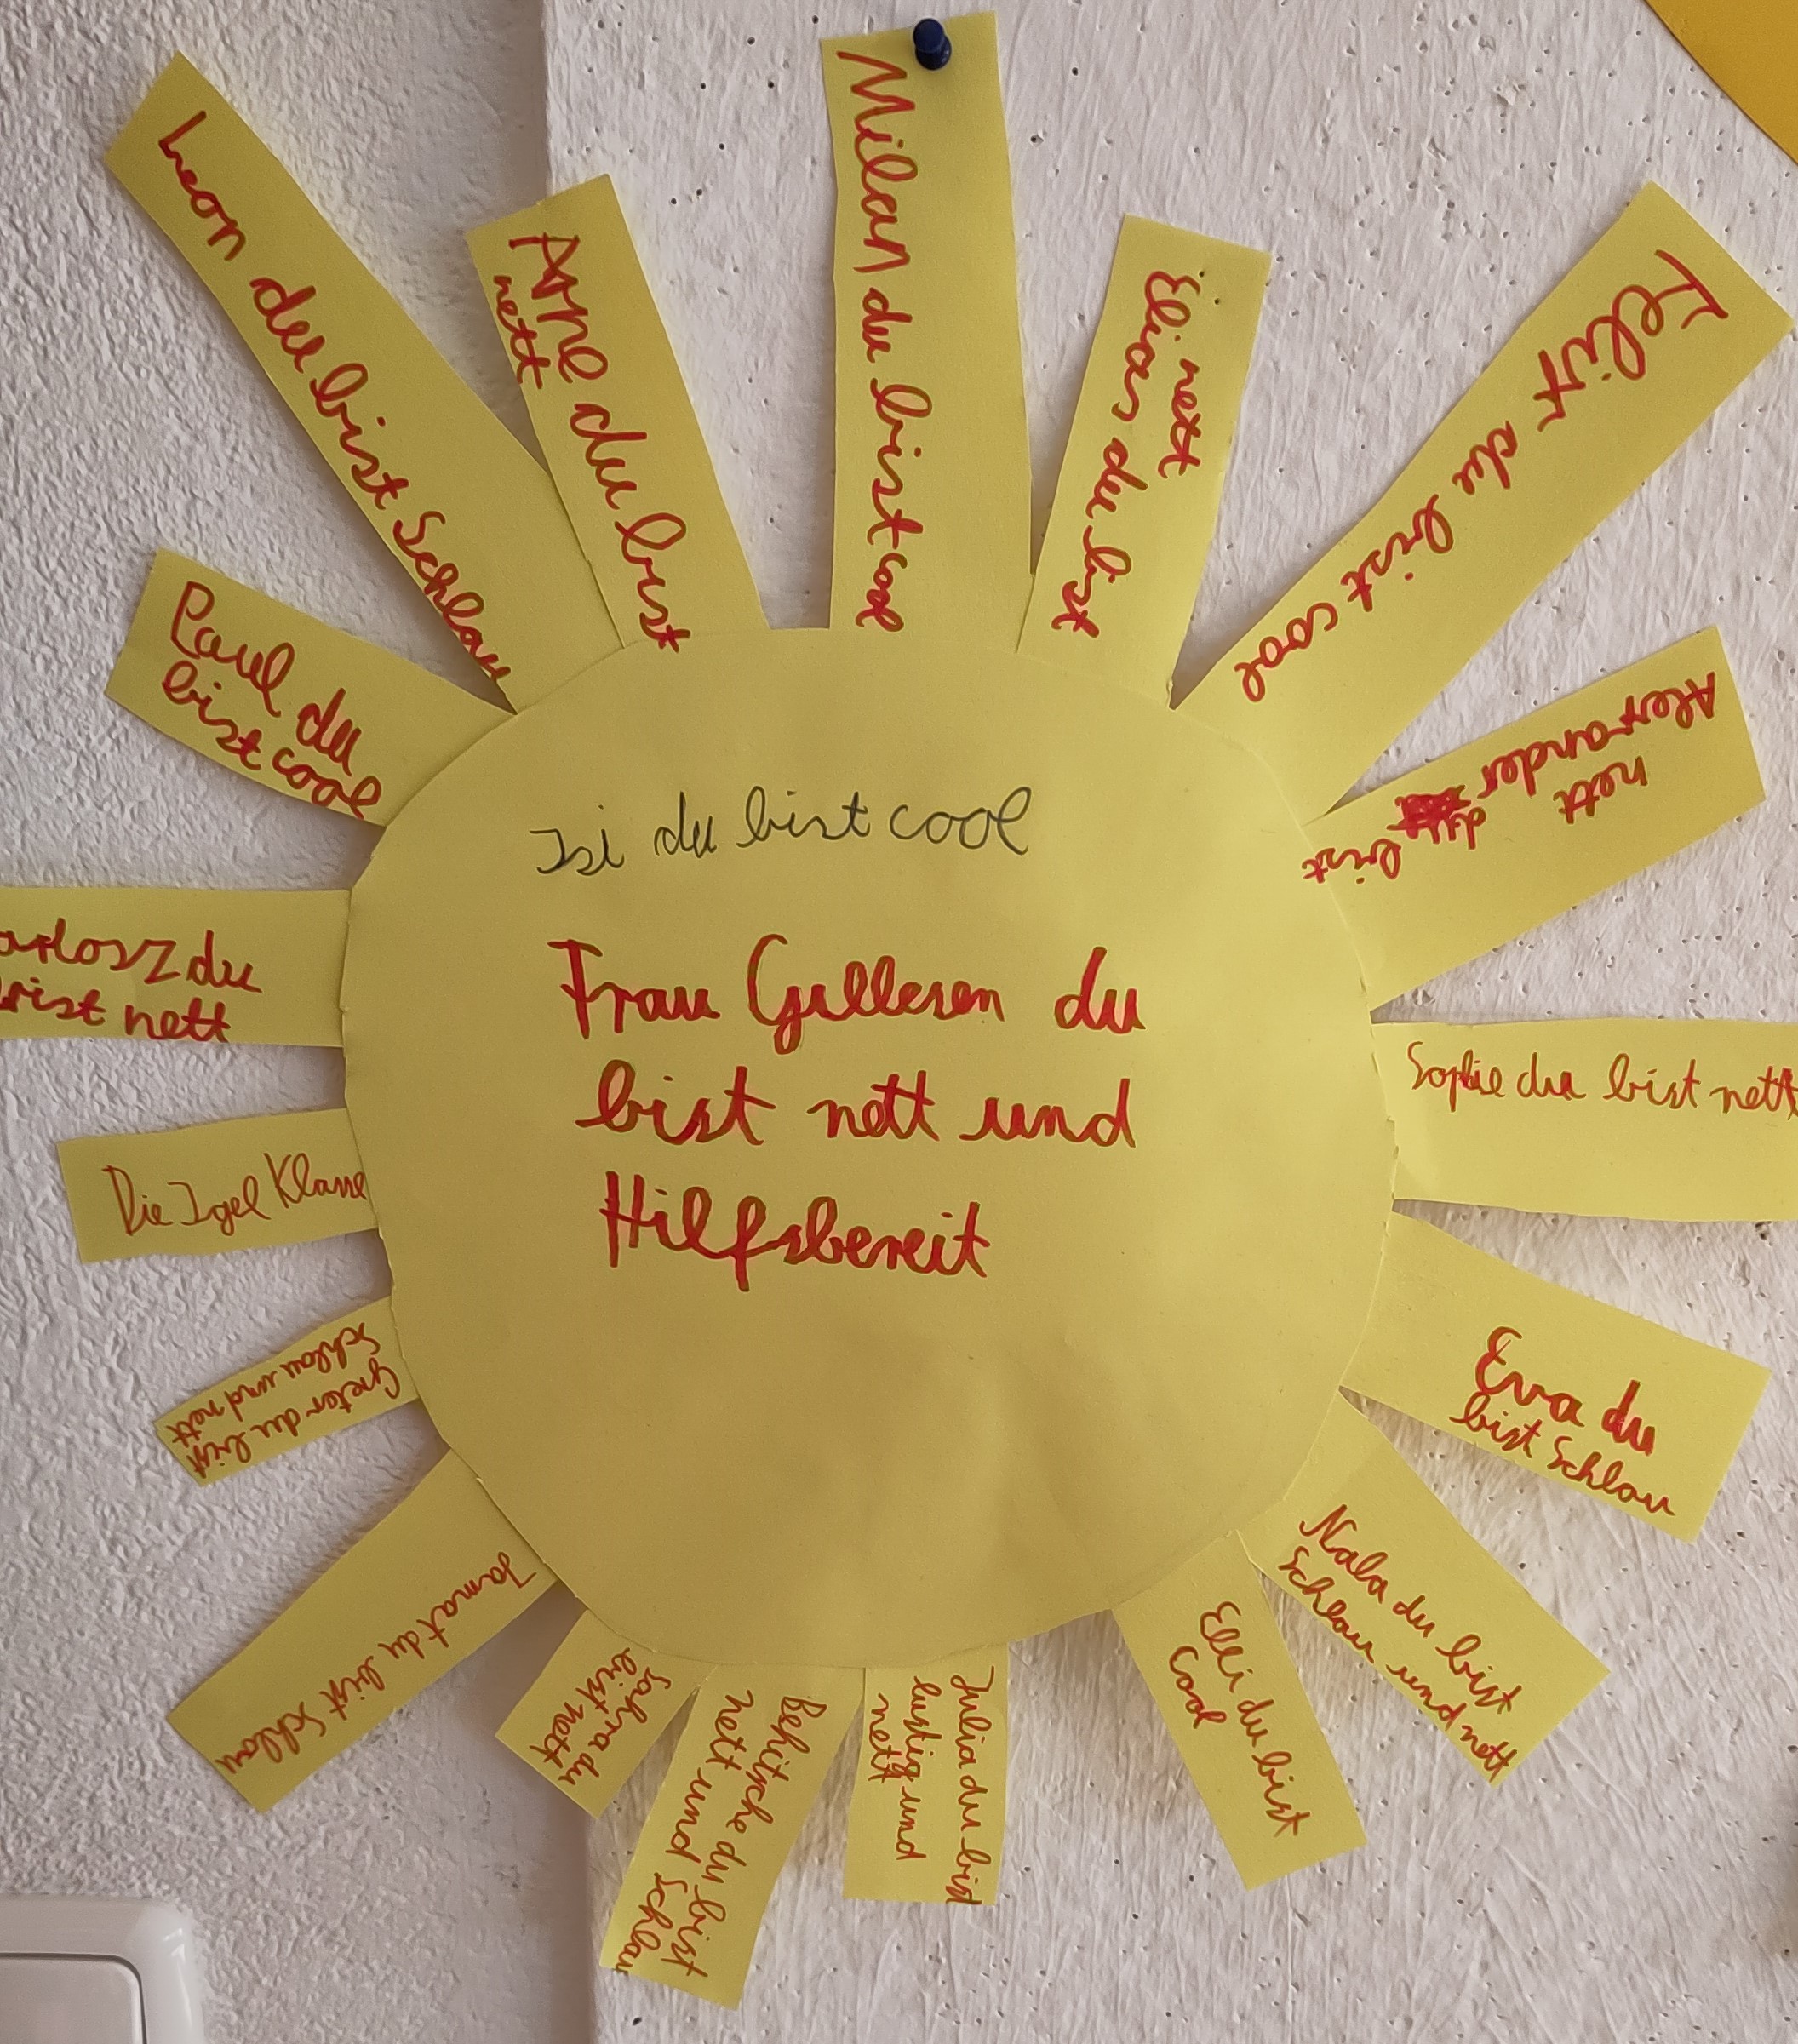 Isi du bist cool
Frau Gulleren du
bist nett und
Hilfsbereit
Milan du bist cool
Elias du bist
nett
Felix du bist cool
Alexander du bist
nett
Sophie du bist nett
Eva du
bist Schlau
Nala du bist
Schlau und nett
Elli du bist
Cool
Julia du bist
lustig und
nett
du bist
nett und Schlau
Sahra du
bist nett
du bist Schlau
du bist
Schlau und nett
Die Igel Klasse
du
bist nett
Paul du
bist cool
Leon du bist Schlau
Arne du bist
nett